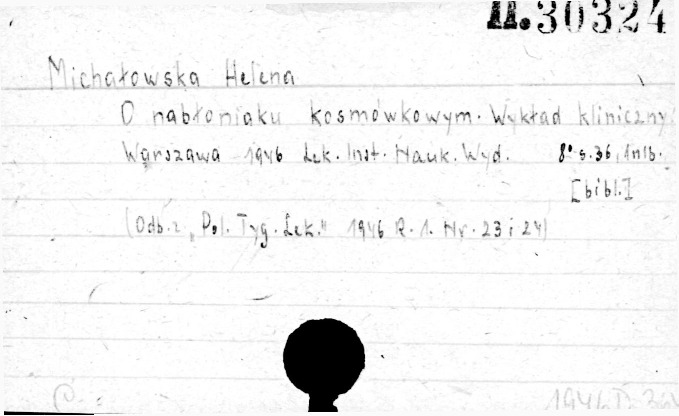 II.30324
Michałowska Helena
O nabłoniaku kosmówkowym. Wykład kliniczny.
Warszawa 1946 Lek. Inst. Nauk. Wyd. 8° s.36, 1nlb.
[bibl.]
(Odb. z „Pol. Tyg. Lek." 1946 R. 1. Nr. 23 i 24)